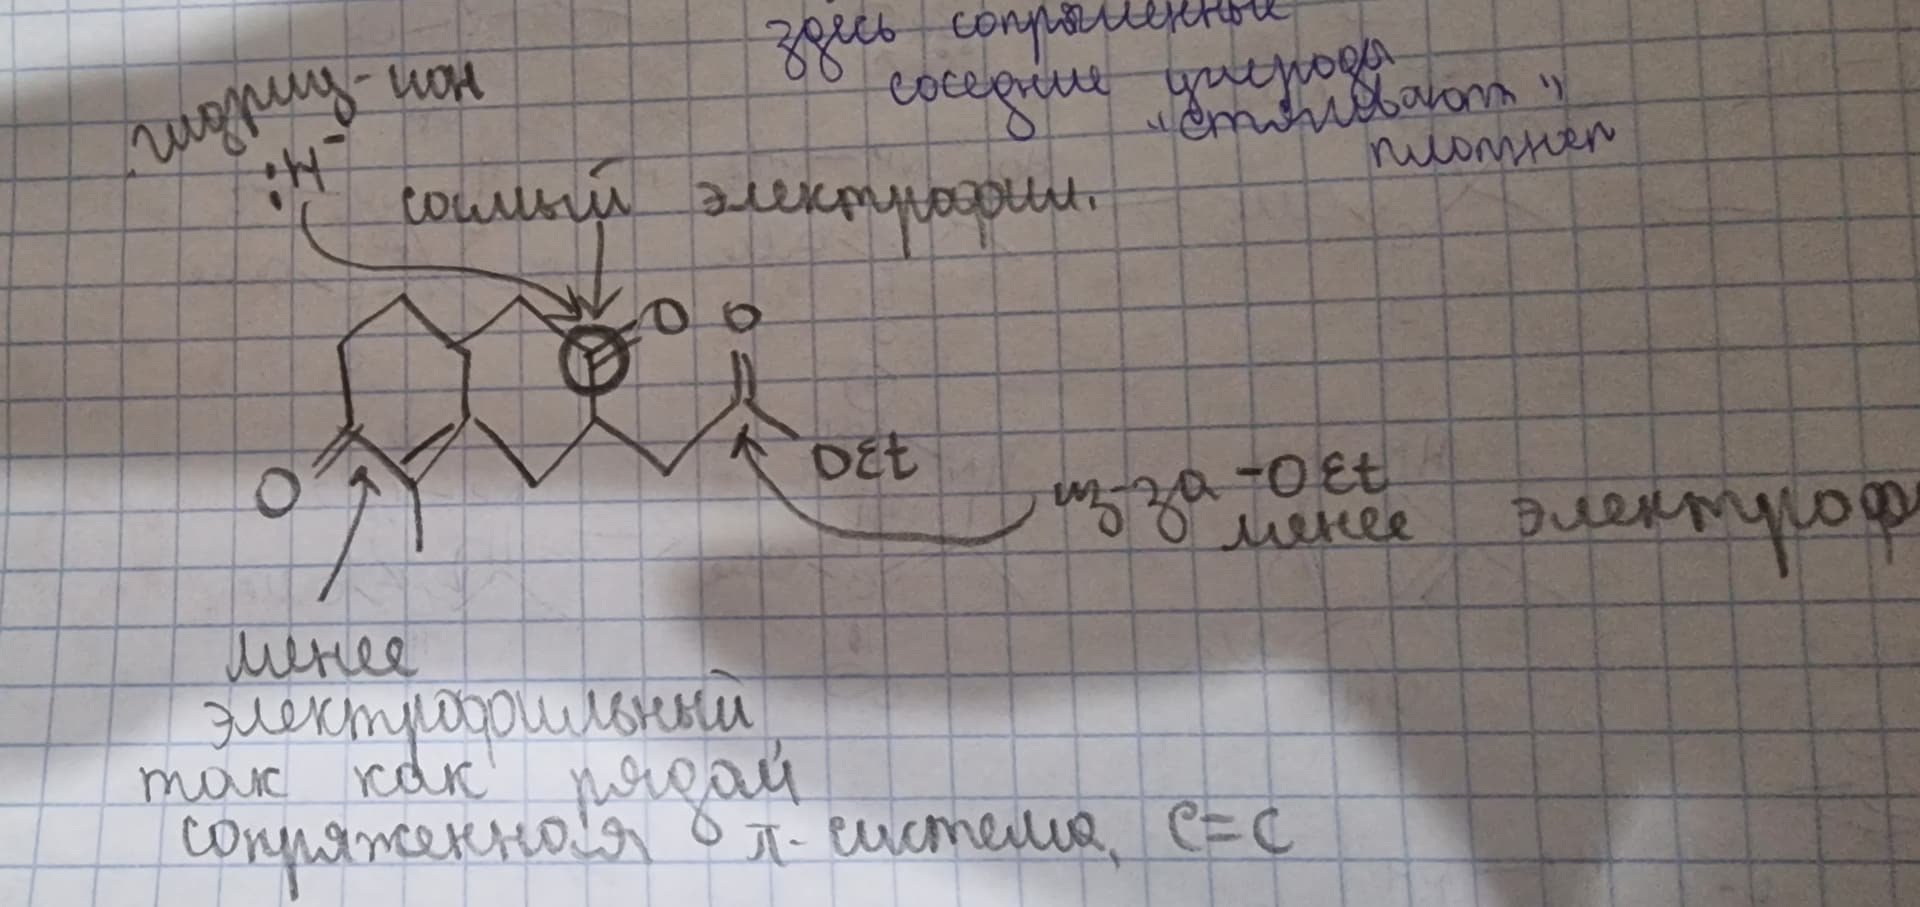 здесь сопряженный
соседние углероды
"стягивают"
плотнее
гидрид-ион
:H⁻
самый электрофил.
O O
OEt
O
из-за -OEt
менее электроф
менее
электрофильный
так как рядом
сопряженная π-система, C=C